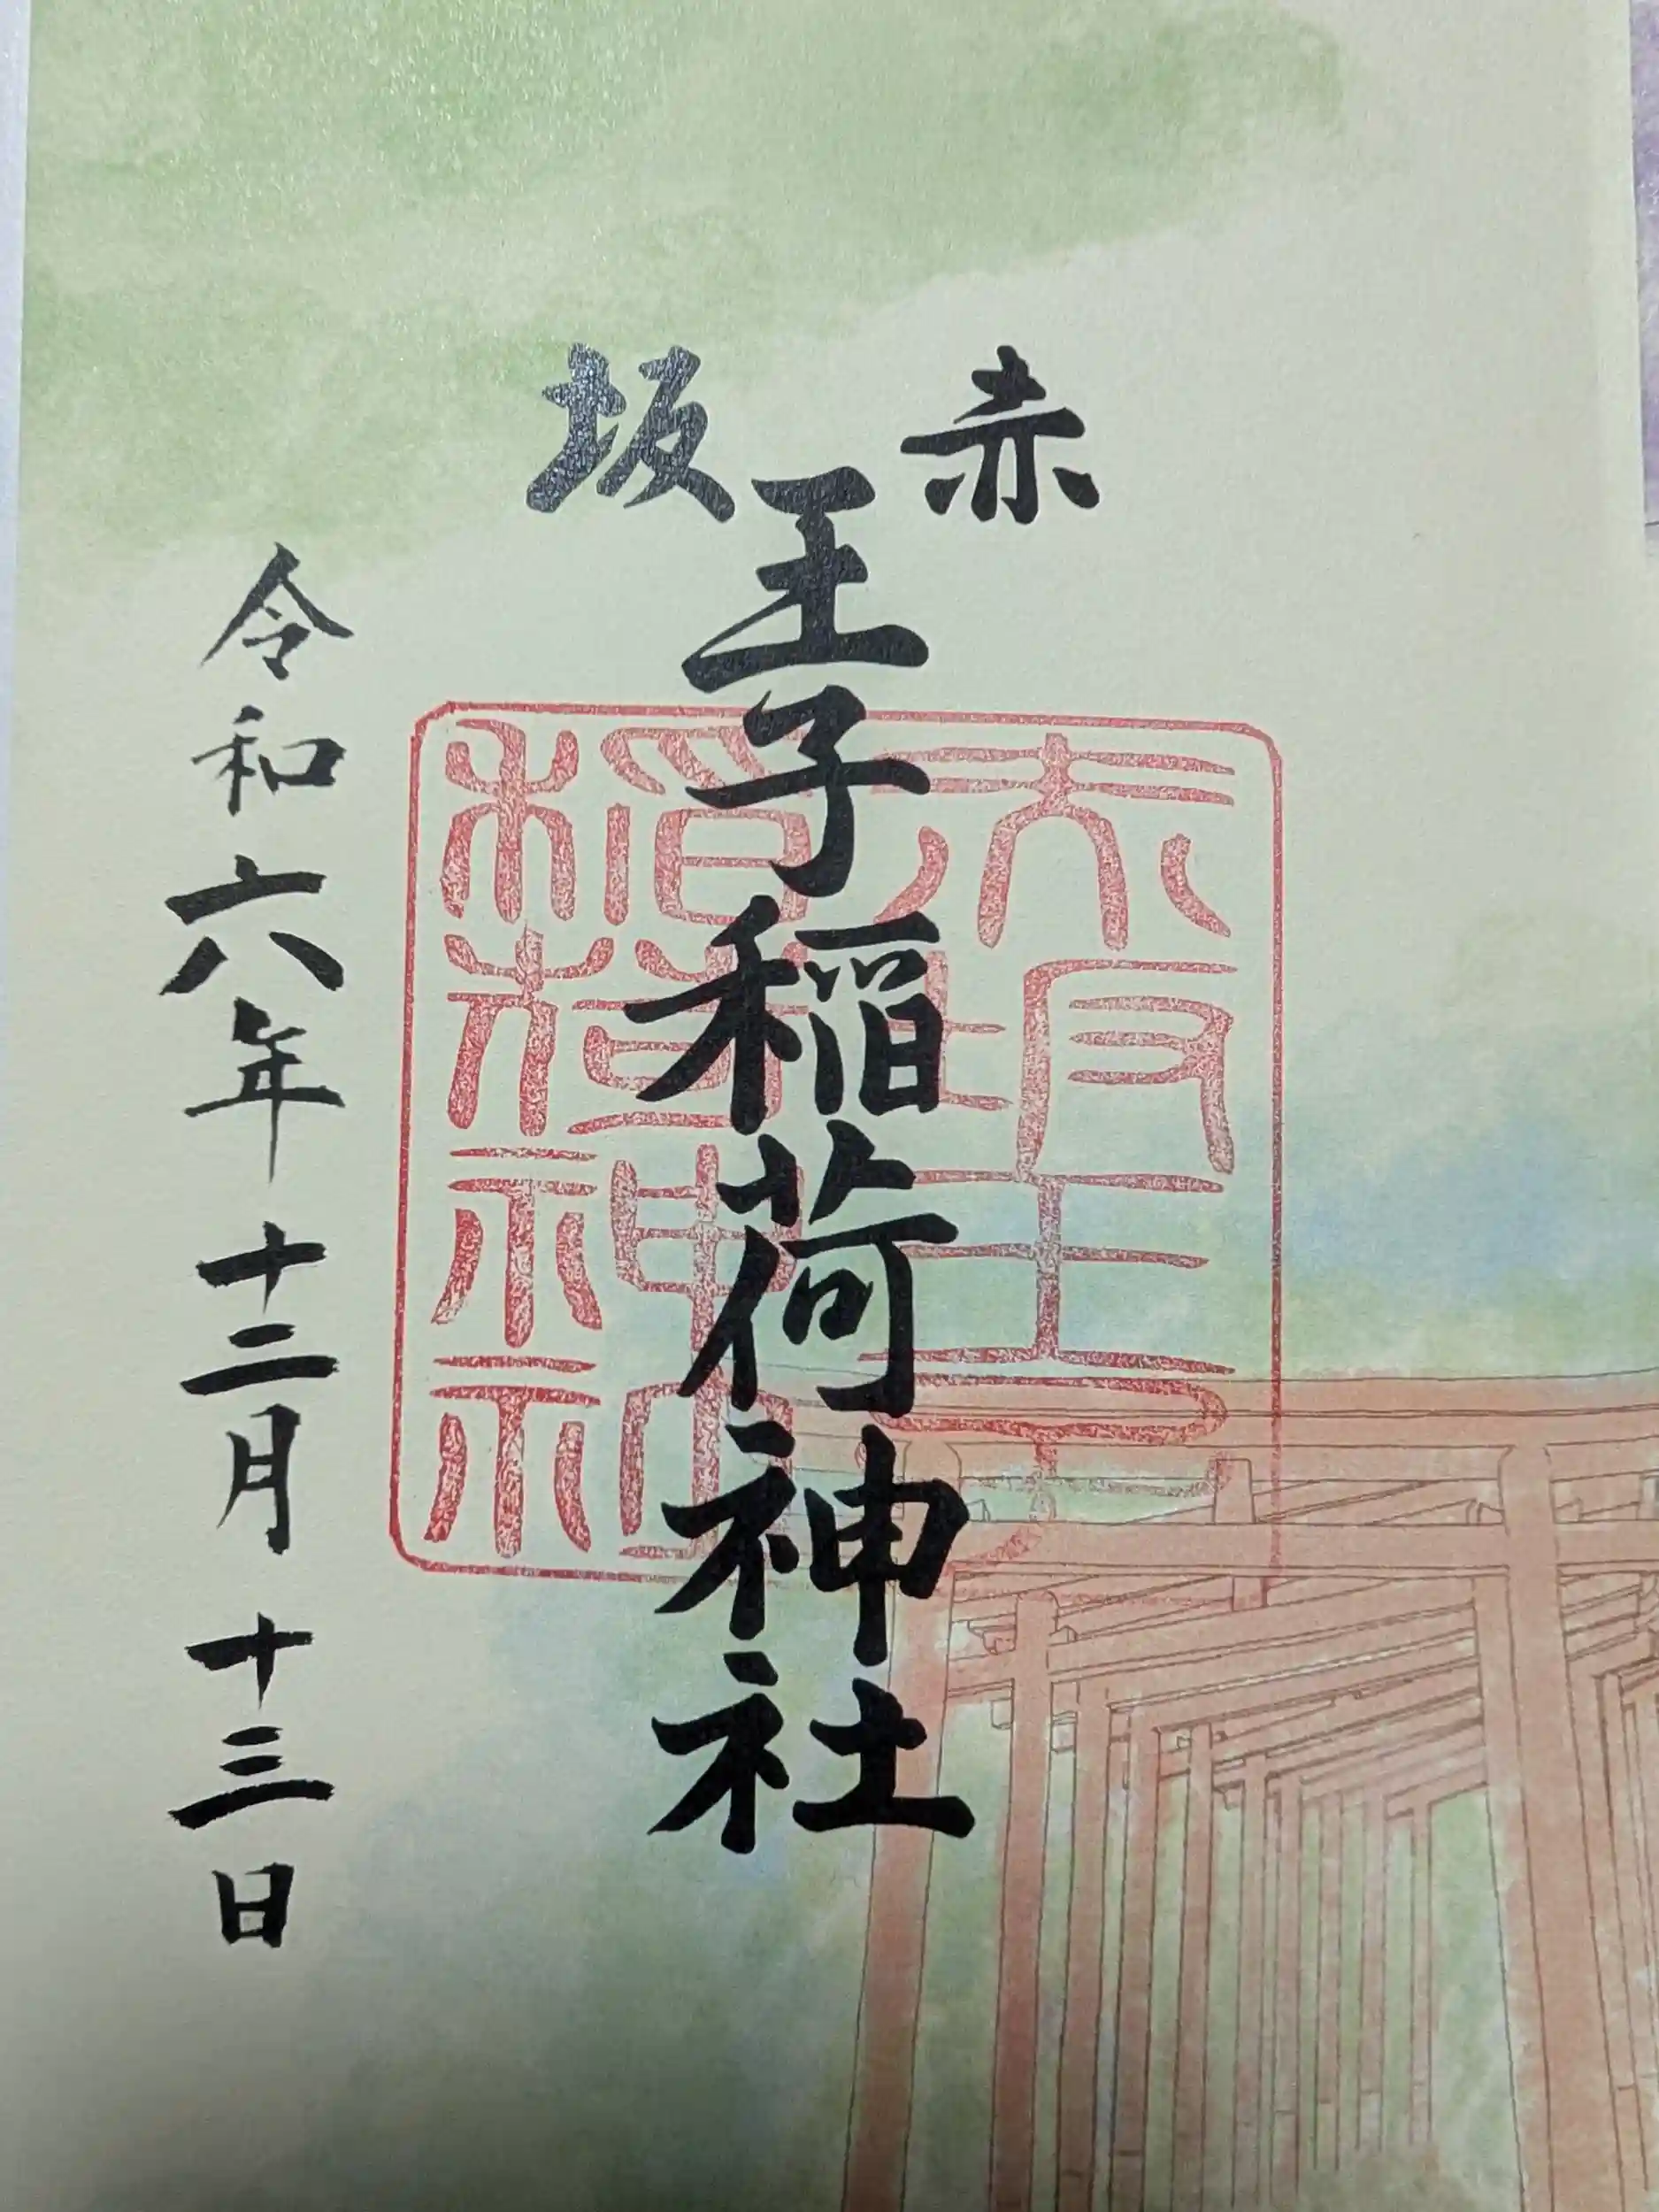 赤坂
王子稲荷神社
令和六年十二月十三日
赤坂王子
稲荷神社